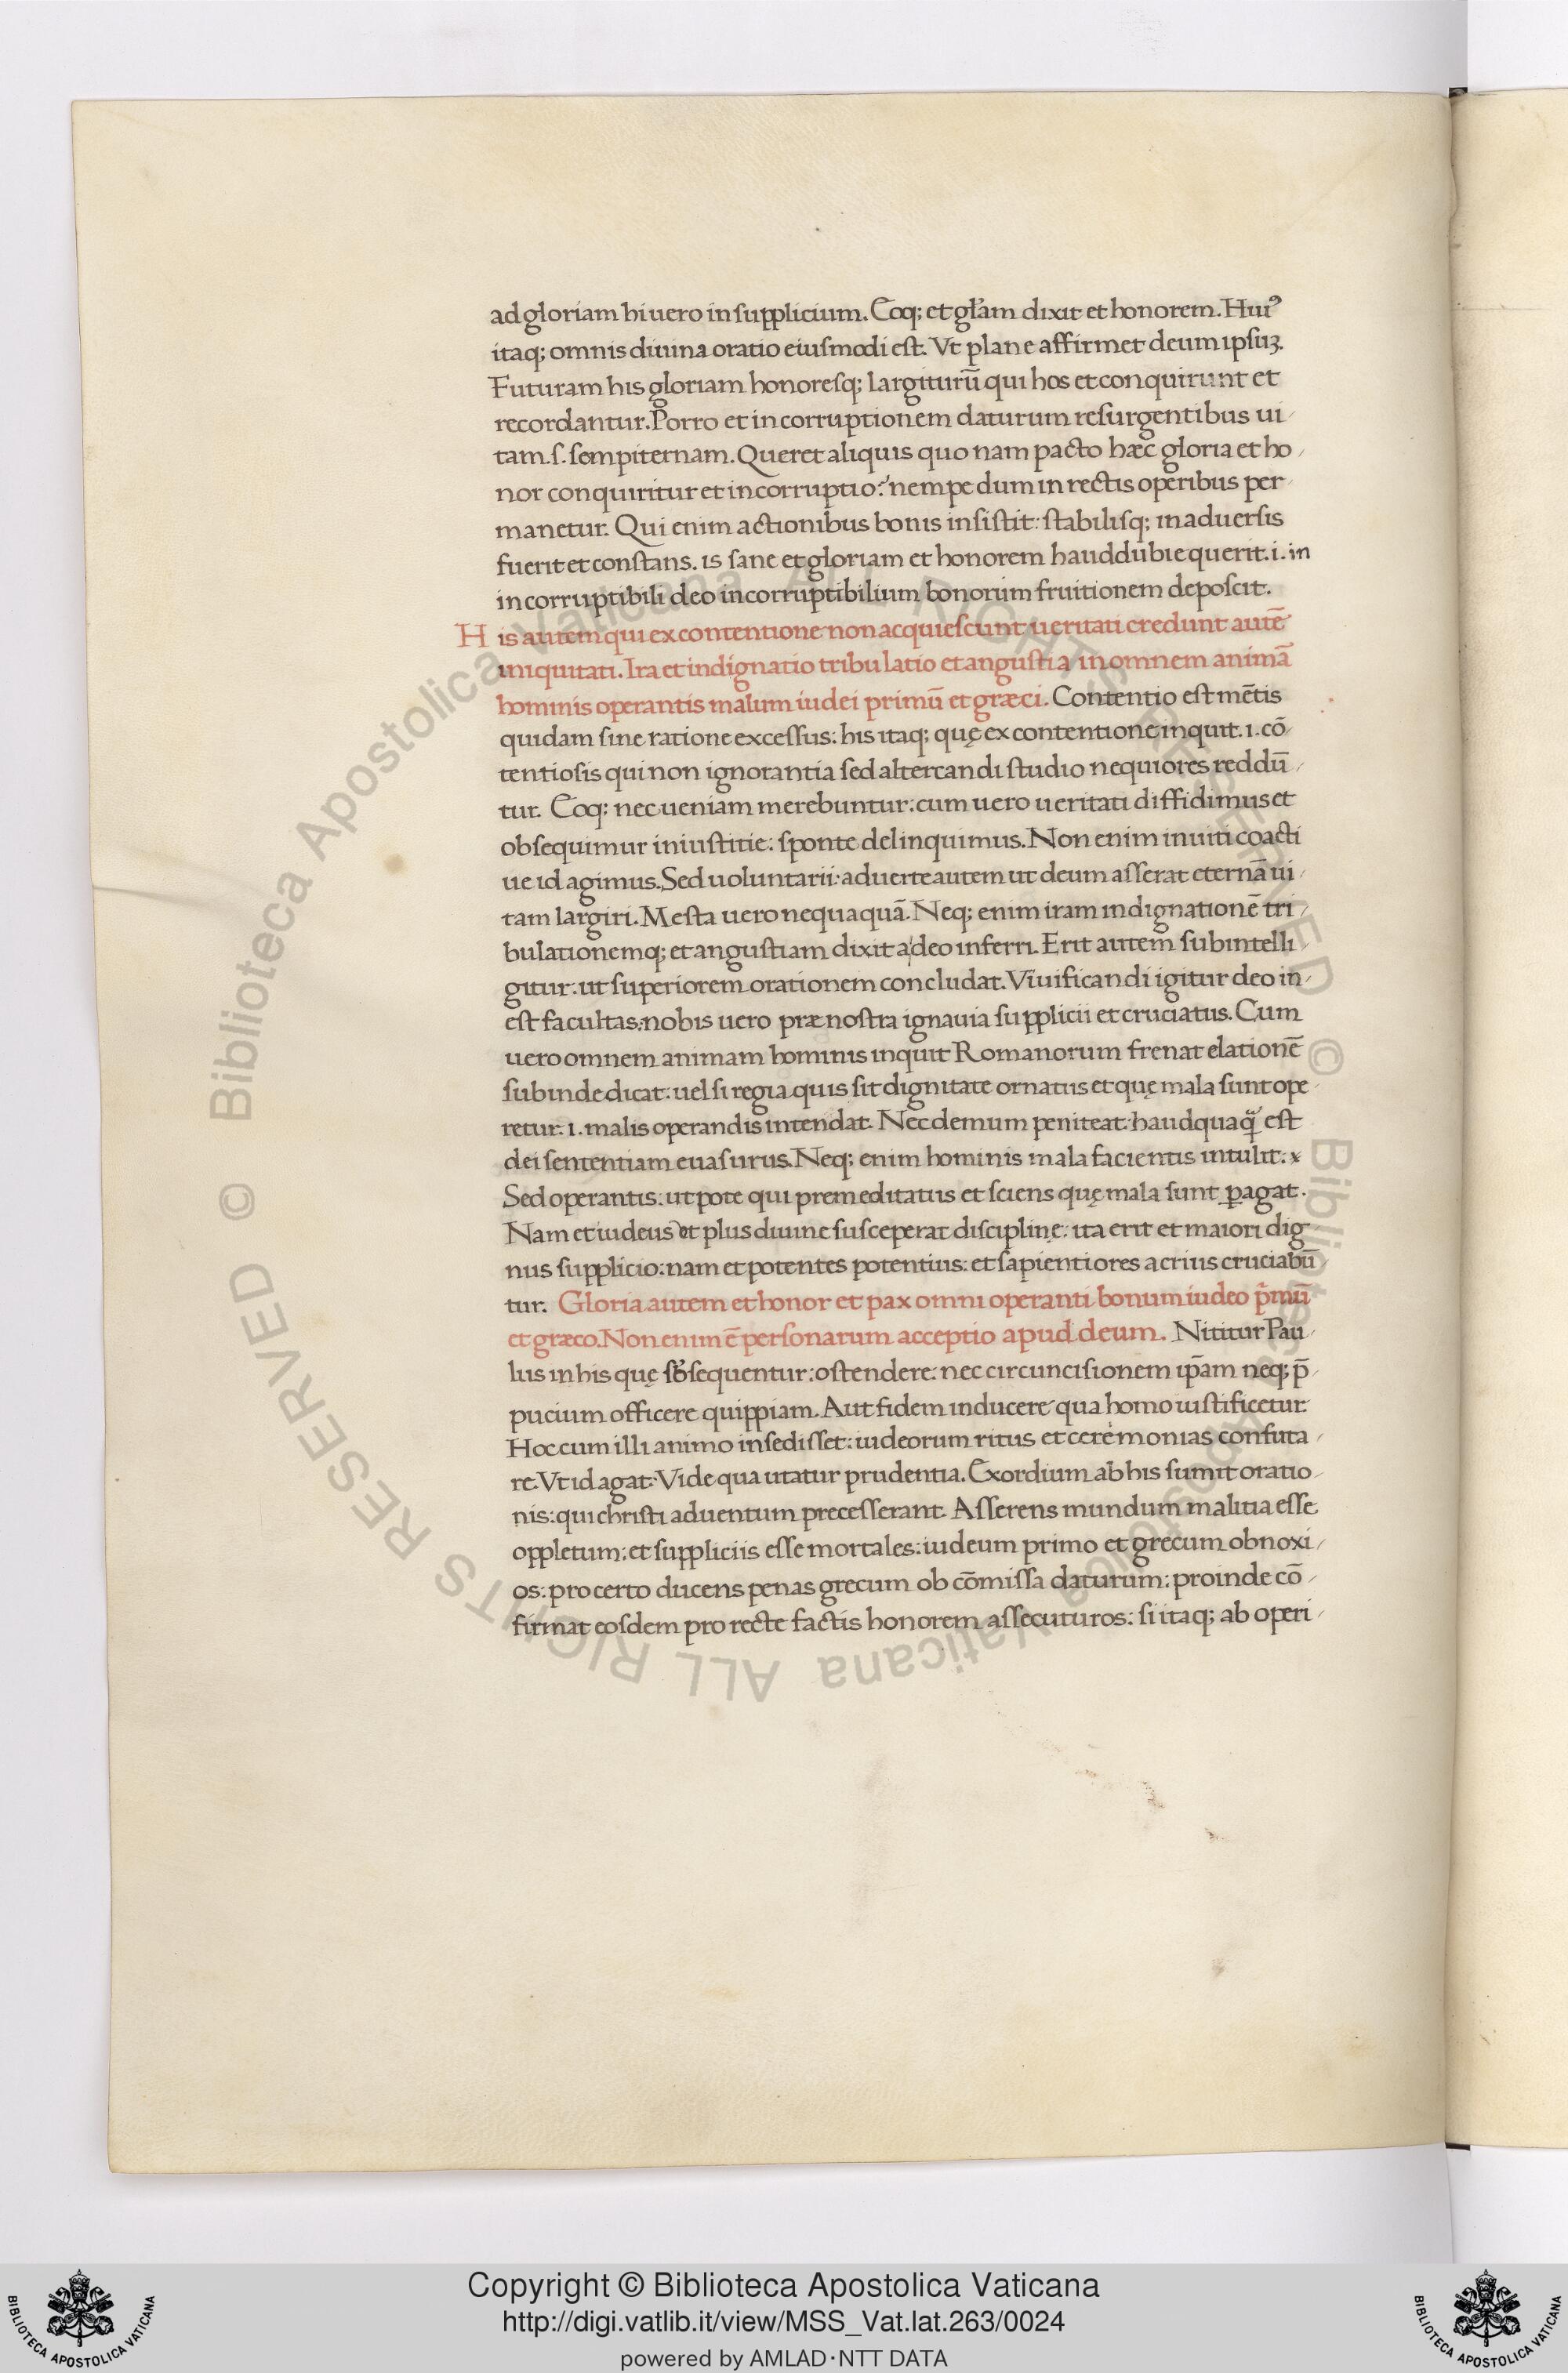 ad gloriam hi uero in supplicium. Eoq; et gl̃am dixit et honorem. Huiꝰ
itaq; omnis diuina oratio eiusmodi est. Vt plane affirmet deum ipsuꝫ.
Futuram his gloriam honoresq; largiturū qui hos et conquirunt et
recordantur. Porro et incorruptionem daturum resurgentibus ui/
tam .s. sempiternam. Queret aliquis quo nam pacto hæc gloria et ho/
nor conquiritur et incorruptio: nempe dum in rectis operibus per/
manetur. Qui enim actionibus bonis insistit: stabilisq; in aduersis
fuerit et constans. is sane et gloriam et honorem haud dubie querit .i. in
incorruptibili deo incorruptibilium bonorum fruitionem deposcit.
His autem qui ex contentione non acquiescunt ueritati credunt autē
iniquitati. Ira et indignatio tribulatio et angustia in omnem animā
hominis operantis malum iudei primū et græci. Contentio est mētis
quidam sine ratione excessus: his itaq; quę ex contentione inquit .i. cō/
tentiosis qui non ignorantia sed altercandi studio nequiores reddū/
tur. Eoq: nec ueniam merebuntur: cum uero ueritati diffidimus et
obsequimur iniustitie: sponte delinquimus. Non enim inuiti coacti
ue id agimus. Sed uoluntarii: aduerte autem ut deum asserat eternā ui/
tam largiri. Mesta uero nequaquā. Neq; enim iram indignationē tri/
bulationemq; et angustiam dixit a deo inferri. Erit autem subintelli/
gitur: ut superiorem orationem concludat. Viuificandi igitur deo in/
est facultas: nobis uero præ nostra ignauia supplicii et cruciatus. Cum
uero omnem animam hominis inquit Romanorum frenat elationē
subinde dicat: uel si regia quis sit dignitate ornatus et quę mala sunt ope/
retur .i. malis operandis intendat. Nec demum peniteat: haudquaq̃ est
dei sententiam euasurus. Neq; enim hominis mala facientis intulit.
Sed operantis: ut pote qui premeditatus et sciens quę mala sunt ꝑagat.
Nam et iudeus et plus diuine susceperat discipline: ita erit et maiori dig
nus supplicio: nam et potentes potentius: et sapientiores acrius cruciabū/
tur. Gloria autem et honor et pax omni operanti bonum iudeo p̃mū
et græco. Non enim ē personarum acceptio apud deum. Nititur Pau/
lus in his quę sb̃sequentur: ostendere: nec circuncisionem ip̃am neq; p̄/
pucium officere quippiam. Aut fidem inducere qua homo iustificetur.
Hoc cum illi animo insedisset: iudeorum ritus et ceremonias confuta/
re. Vt id agat: Vide qua utatur prudentia. Exordium ab his sumit oratio/
nis: qui christi aduentum precesserant. Asserens mundum malitia esse
oppletum: et suppliciis esse mortales: iudeum primo et grecum obnoxi/
os: pro certo ducens penas grecum ob cōmissa daturum: proinde cō/
firmat eosdem pro recte factis honorem assecuturos: si itaq; ab operi/
© Biblioteca Apostolica Vaticana ALL RIGHTS RESERVED © Biblioteca Apostolica Vaticana ALL RIGHTS RESERVED
Copyright © Biblioteca Apostolica Vaticana
http://digi.vatlib.it/view/MSS_Vat.lat.263/0024
powered by AMLAD·NTT DATA
BIBLIOTECA APOSTOLICA VATICANA
BIBLIOTECA APOSTOLICA VATICANA